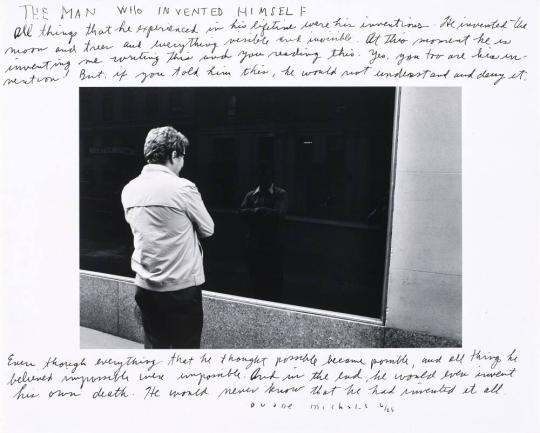 THE MAN WHO INVENTED HIMSELF
All things that he experienced in his lifetime were his inventions. He invented the
moon and trees and everything visible and invisible. At this moment he is
inventing me writing this and you reading this. Yes, you too are his in-
vention. But, if you told him this, he would not understand and deny it.
Even though everything that he thought possible became possible, and all things he
believed impossible were impossible. And in the end, he would even invent
his own death. He would never know that he had invented it all.
Duane Michals 6/25